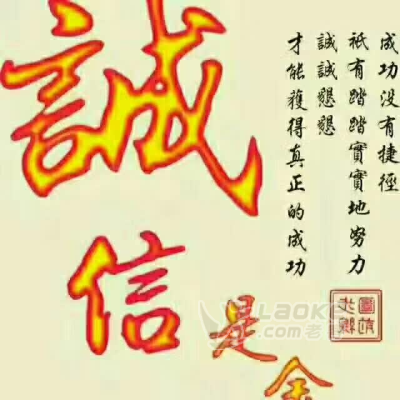 誠信
是金
成功没有捷徑
衹有踏踏實實地努力
誠誠懇懇
才能獲得真正的成功
LAOKE老客